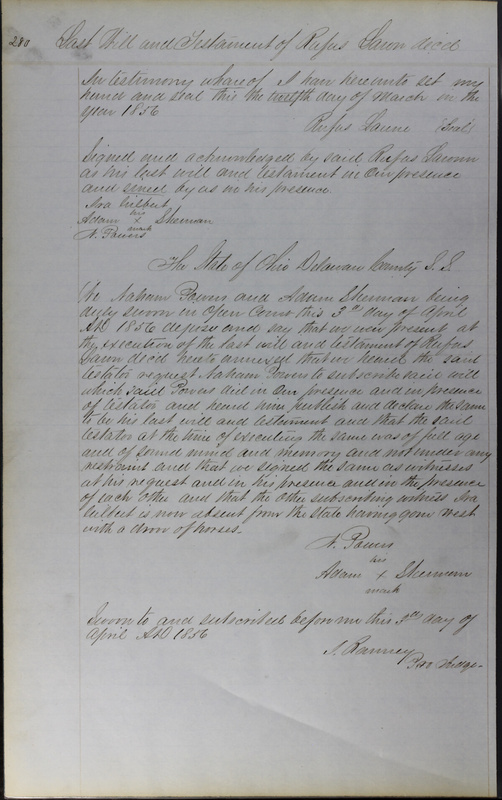 280
Last Will and Testament of Rufus Sawn decd
In testimony whereof I han hereunto set my
hand and seal this the twelfth day of March in the
year 1856
Rufus (Seal)
Signed and acknowledged by said Rufus
as his last will and testament in our presence
and by us in his presence
Ira Gilbert
his
Adam x Sherman
mark
N. Powers
The State of Ohio Delawar County S.S
We Naham Powers and Adam Sherman being
duly sworn in open Court this 3rd day of April
AD 1856 depose and say that we were present at
the execution of the last will and testament of Rufus
Sawn decd hereto annexed that we heard the said
testator request Naham Powers to subscribe said will
which said Powers did in our presence and in presence
of testator and heard him publish and declare the same
to be his last will and testament and that the said
testator at the time of executing the same was of full age
and of sound mind and memory and not under any
restraint and that we signed the same as witnesses
at his request and in his presence and in the presence
of each other and that the other subscribing witness Ira
Gilbert is now absent from the state having gone west
with a drove of horses.
N. Powers
his
Adam x Sherman
mark
Sworn to and subscribed before me this 3rd day of
April AD 1856
Ranney
Pro Judge